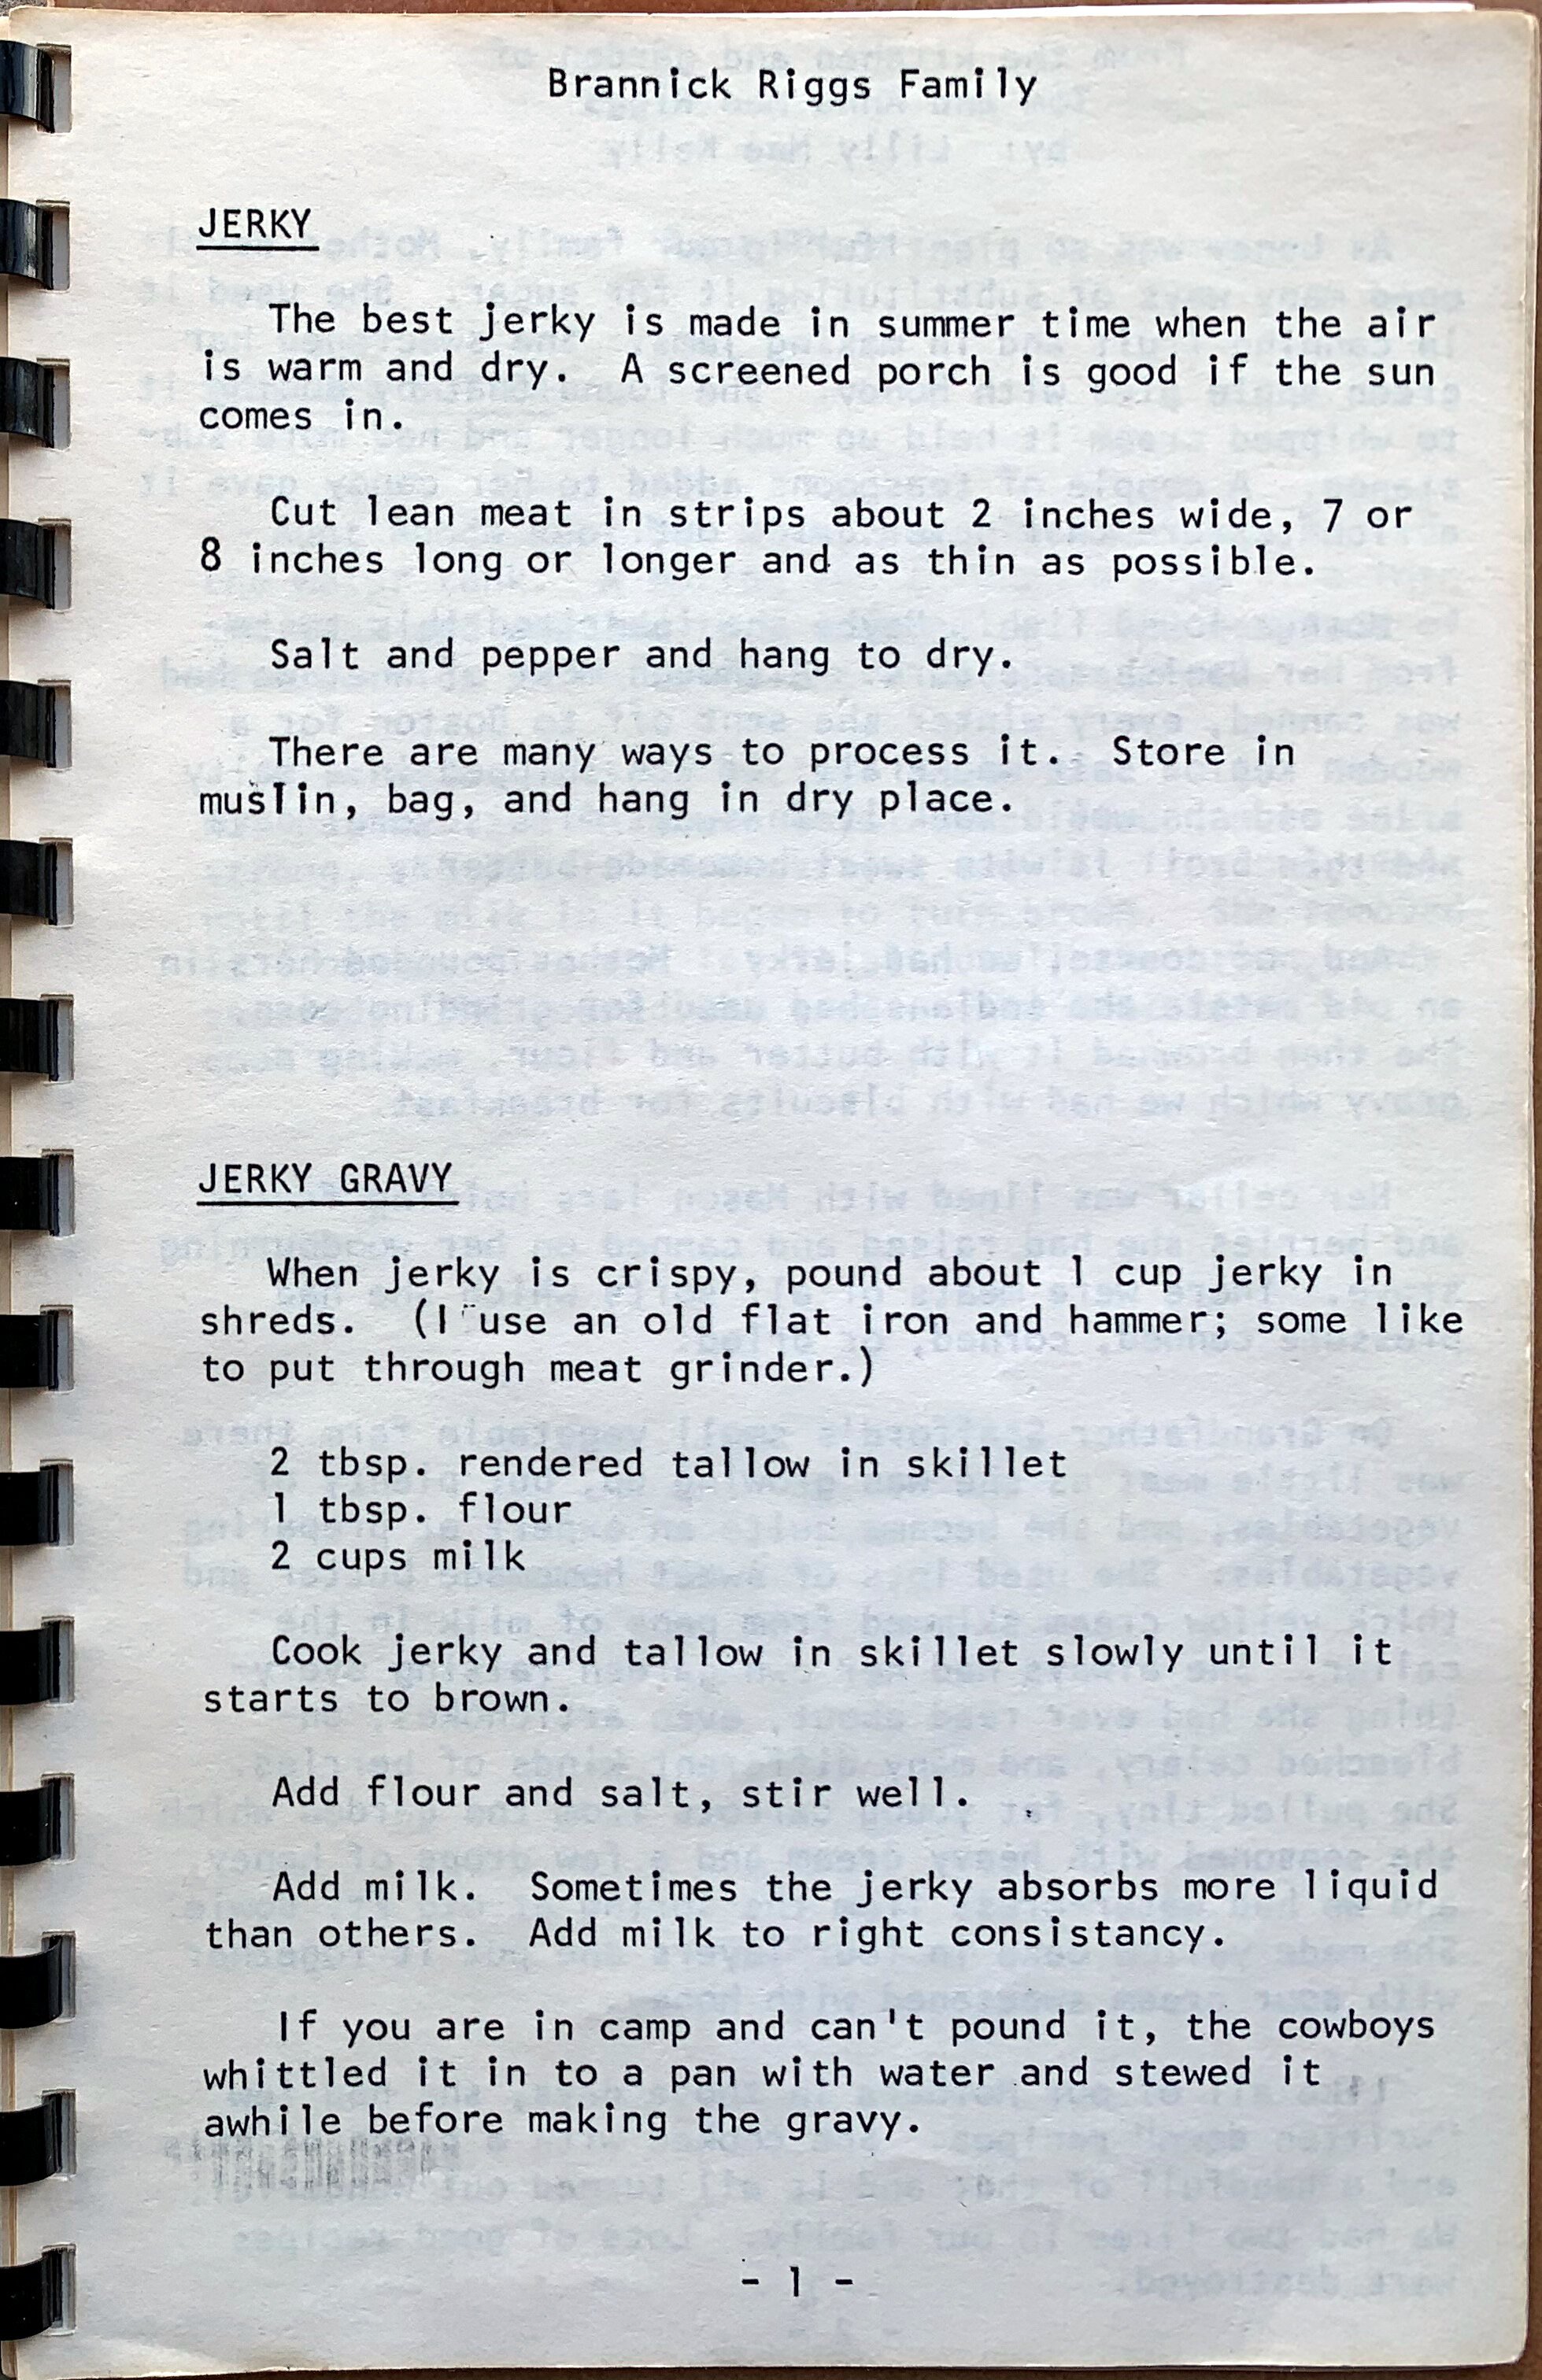 Brannick Riggs Family
JERKY
The best jerky is made in summer time when the air
is warm and dry. A screened porch is good if the sun
comes in.
Cut lean meat in strips about 2 inches wide, 7 or
8 inches long or longer and as thin as possible.
Salt and pepper and hang to dry.
There are many ways to process it. Store in
muslin, bag, and hang in dry place.
JERKY GRAVY
When jerky is crispy, pound about 1 cup jerky in
shreds. (I use an old flat iron and hammer; some like
to put through meat grinder.)
2 tbsp. rendered tallow in skillet
1 tbsp. flour
2 cups milk
Cook jerky and tallow in skillet slowly until it
starts to brown.
Add flour and salt, stir well.
Add milk. Sometimes the jerky absorbs more liquid
than others. Add milk to right consistancy.
If you are in camp and can't pound it, the cowboys
whittled it in to a pan with water and stewed it
awhile before making the gravy.
- 1 -